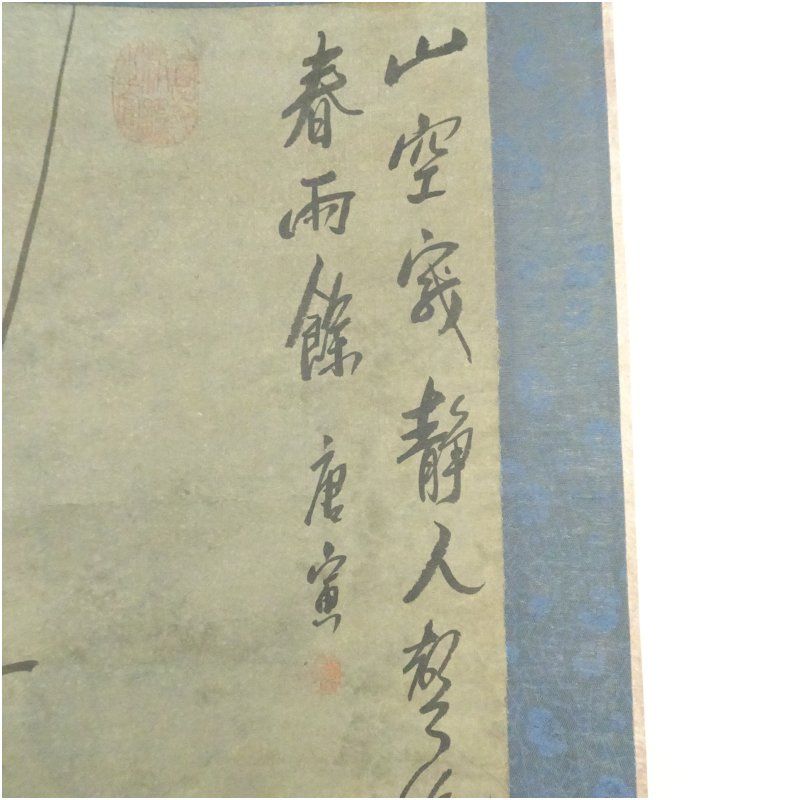 山空寂靜人聲
春雨餘 唐寅